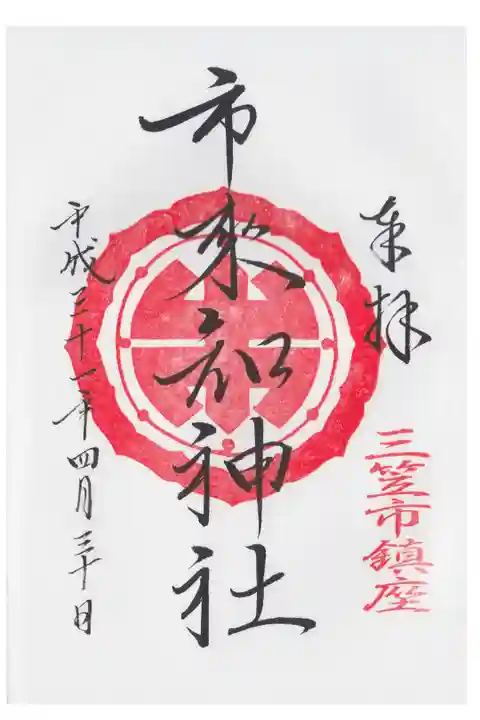 奉拝
三笠市鎮座
市來知神社
平成三十一年四月三十日